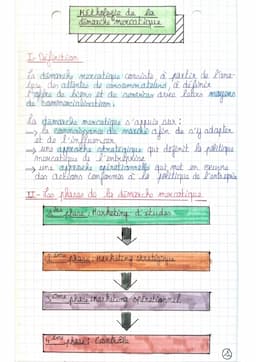 Méthologie de la
démarche mercatique
I- Définition
La démarche mercatique consiste à partir de l'ana-
lyse des attentes de consommateurs, à définir
l'offre de biens et de services avec leurs moyens
de commercialisation.
La démarche mercatique s'appuie sur :
→ la connaissance du marché afin de s'y adapter
et de l'influencer
→ une approche stratégique qui définit la politique
mercatique de l'entreprise
→ une approche opérationnelle qui met en oeuvre
des actions conformes à la politique de l'entreprise
II- Les phases de la démarche mercatique
phase : Marketing d'études
2ème phase : Marketing stratégique
3ème phase : marketing opérationnel
4ème phase : Contrôle